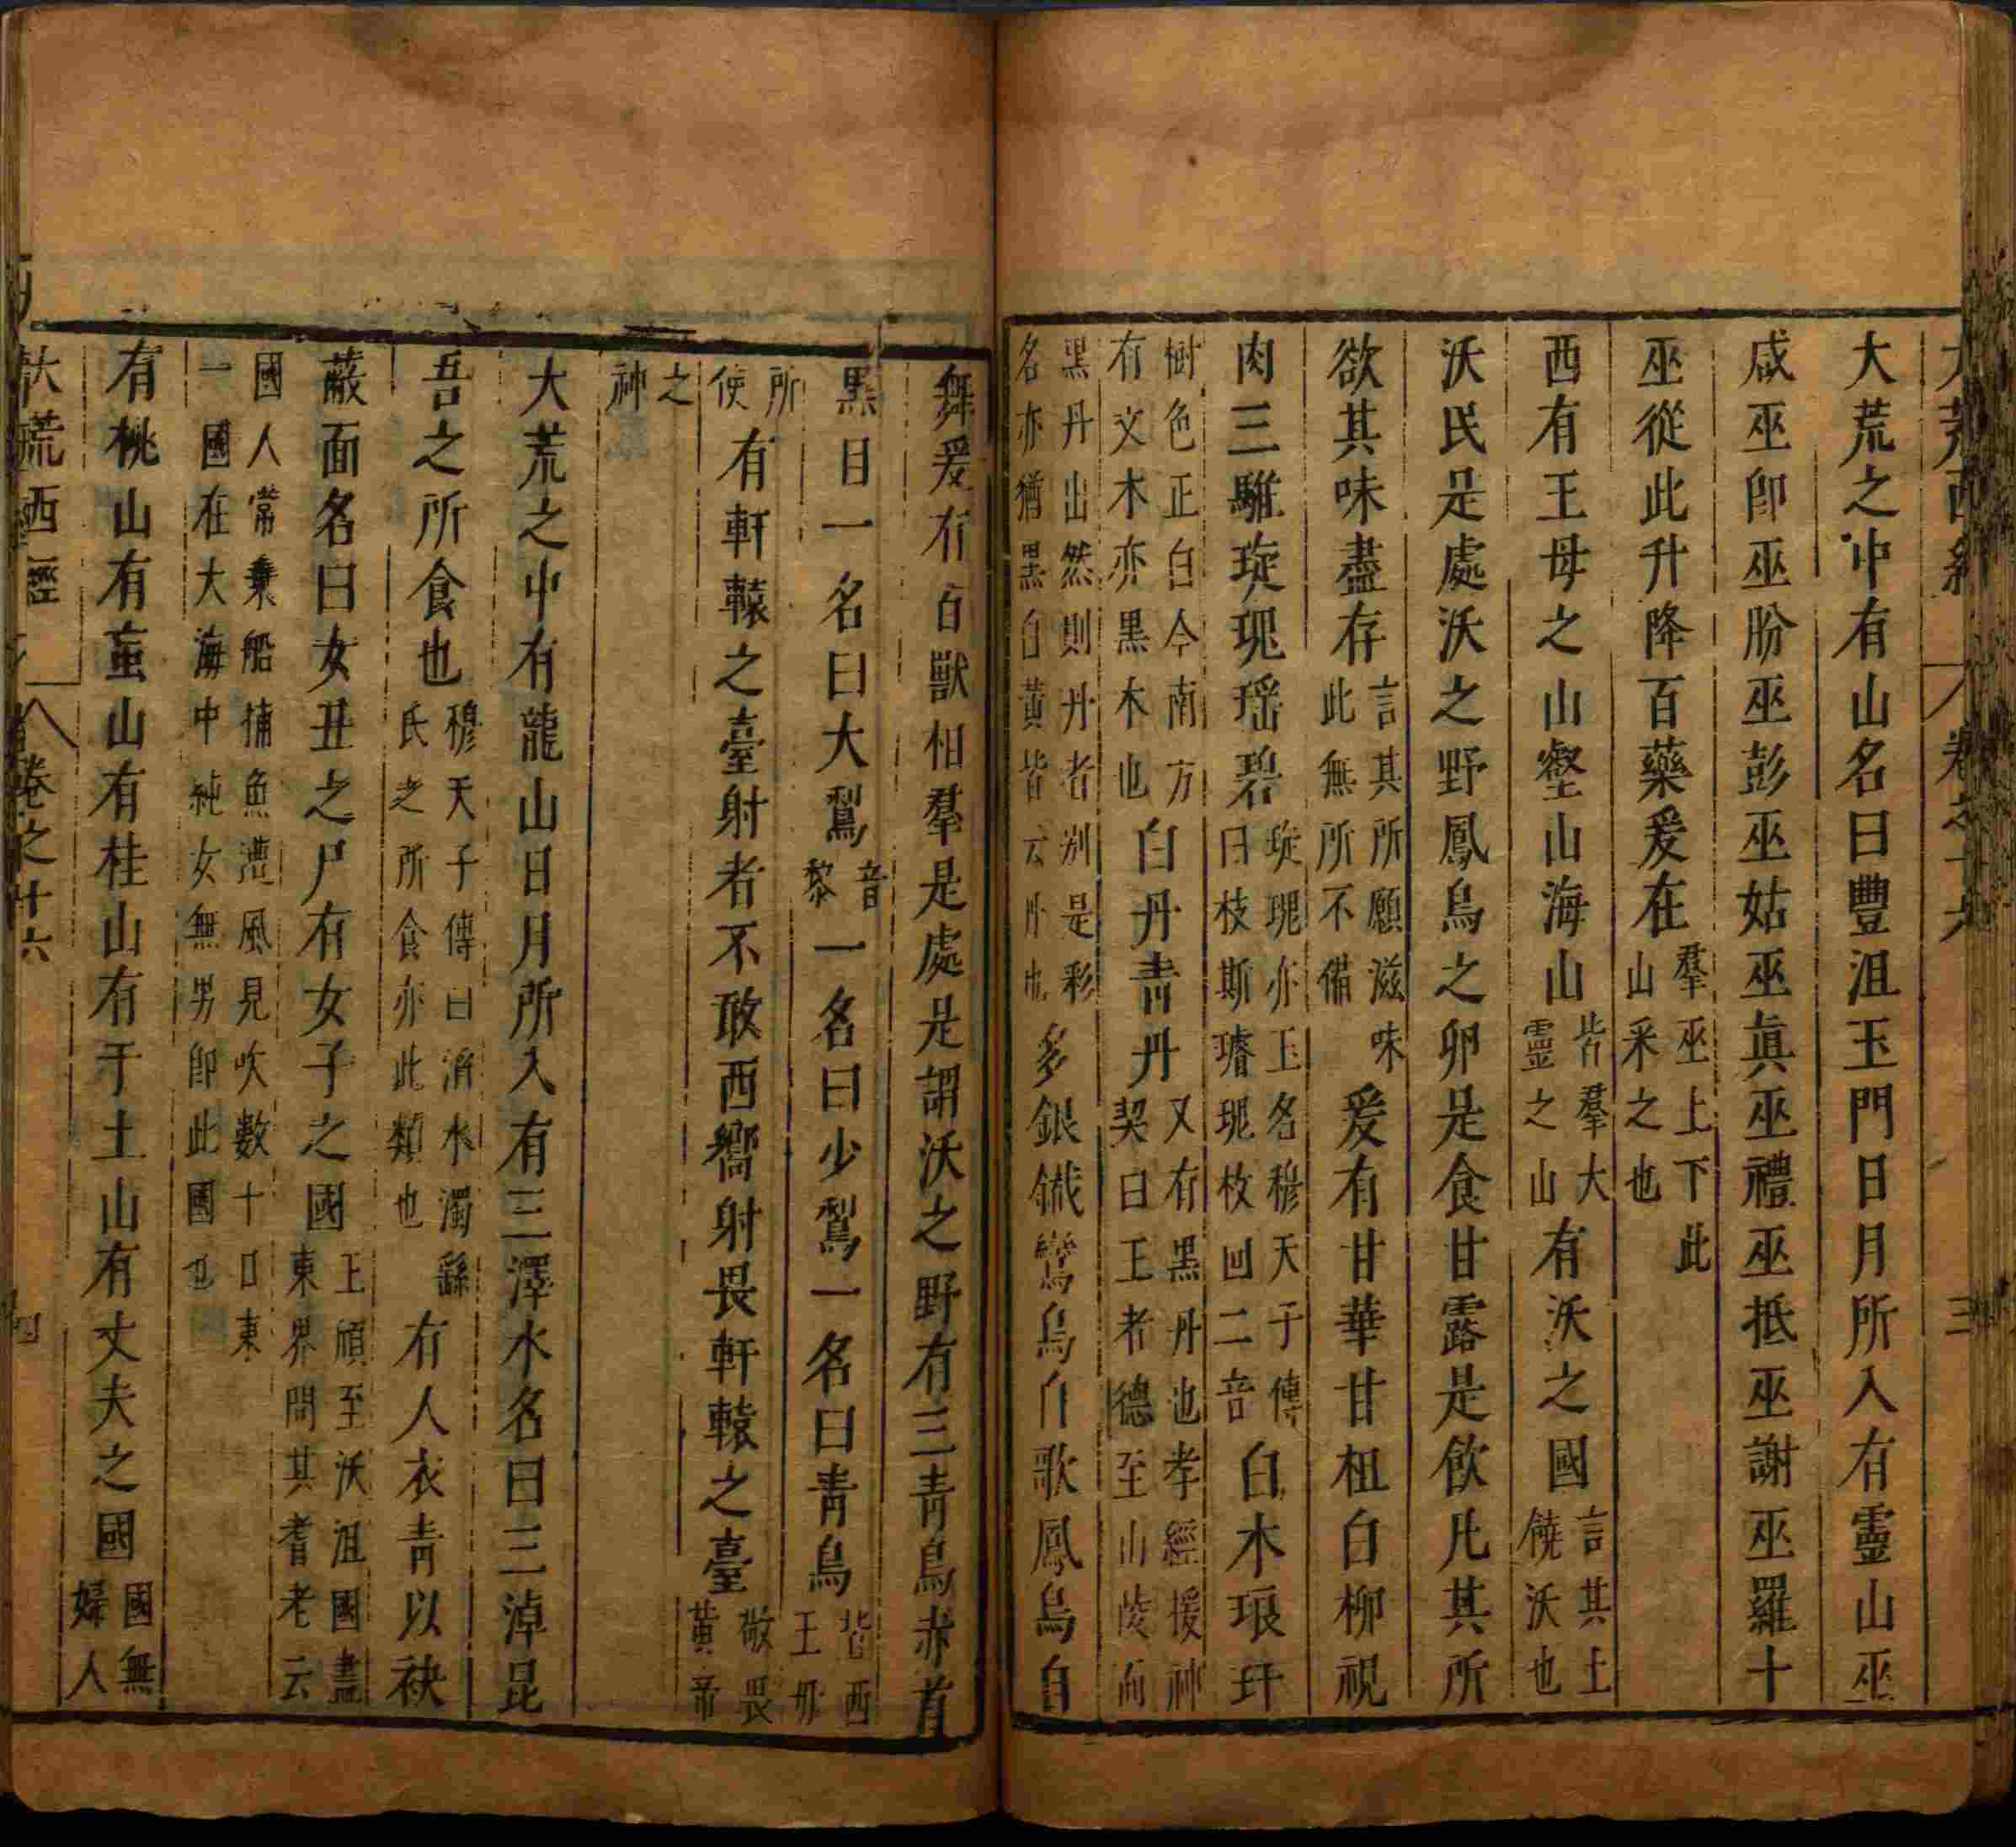 大荒西經 卷之十六 三
大荒之中有山名曰豐沮玉門日月所入有靈山巫
咸巫卽巫肦巫彭巫姑巫眞巫禮巫抵巫謝巫羅十
巫從此升降百藥爰在羣巫上下此山采之也
西有王母之山壑山海山皆羣大靈之山有沃之國言其土饒沃也
沃民是處沃之野鳳鳥之卵是食甘露是飲凡其所
欲其味盡存言其所願滋味此無所不備爰有甘華甘柤白柳視
肉三騅琁瑰瑤碧琁瑰亦玉名穆天子傳曰枝斯璿瑰枚回二音白木琅玕
樹色正白今南方有文木亦黑木也白丹青丹又有黑丹也孝經援神契曰王者德至山陵而
黑丹出然則丹者別是彩名亦猶黑白黃皆云丹也多銀鐵鸞鳥自歌鳳鳥自
舞爰有百獸相羣是處是謂沃之野有三青鳥赤首
黑目一名曰大鵹音黎一名曰少鵹一名曰青鳥皆西王母
所使有軒轅之臺射者不敢西嚮射畏軒轅之臺敬畏黃帝
之神
大荒之中有龍山日月所入有三澤水名曰三淖昆
吾之所食也穆天子傳曰滔水濁繇氏之所食亦此類也有人衣青以袂
蔽面名曰女丑之尸有女子之國王頎至沃沮國盡東界問其耆老云
國人常乗船捕魚遭風見吹數十日東一國在大海中純女無男卽此國也
有桃山有䖟山有桂山有于土山有丈夫之國國無婦人
大荒西經 卷之十六 四